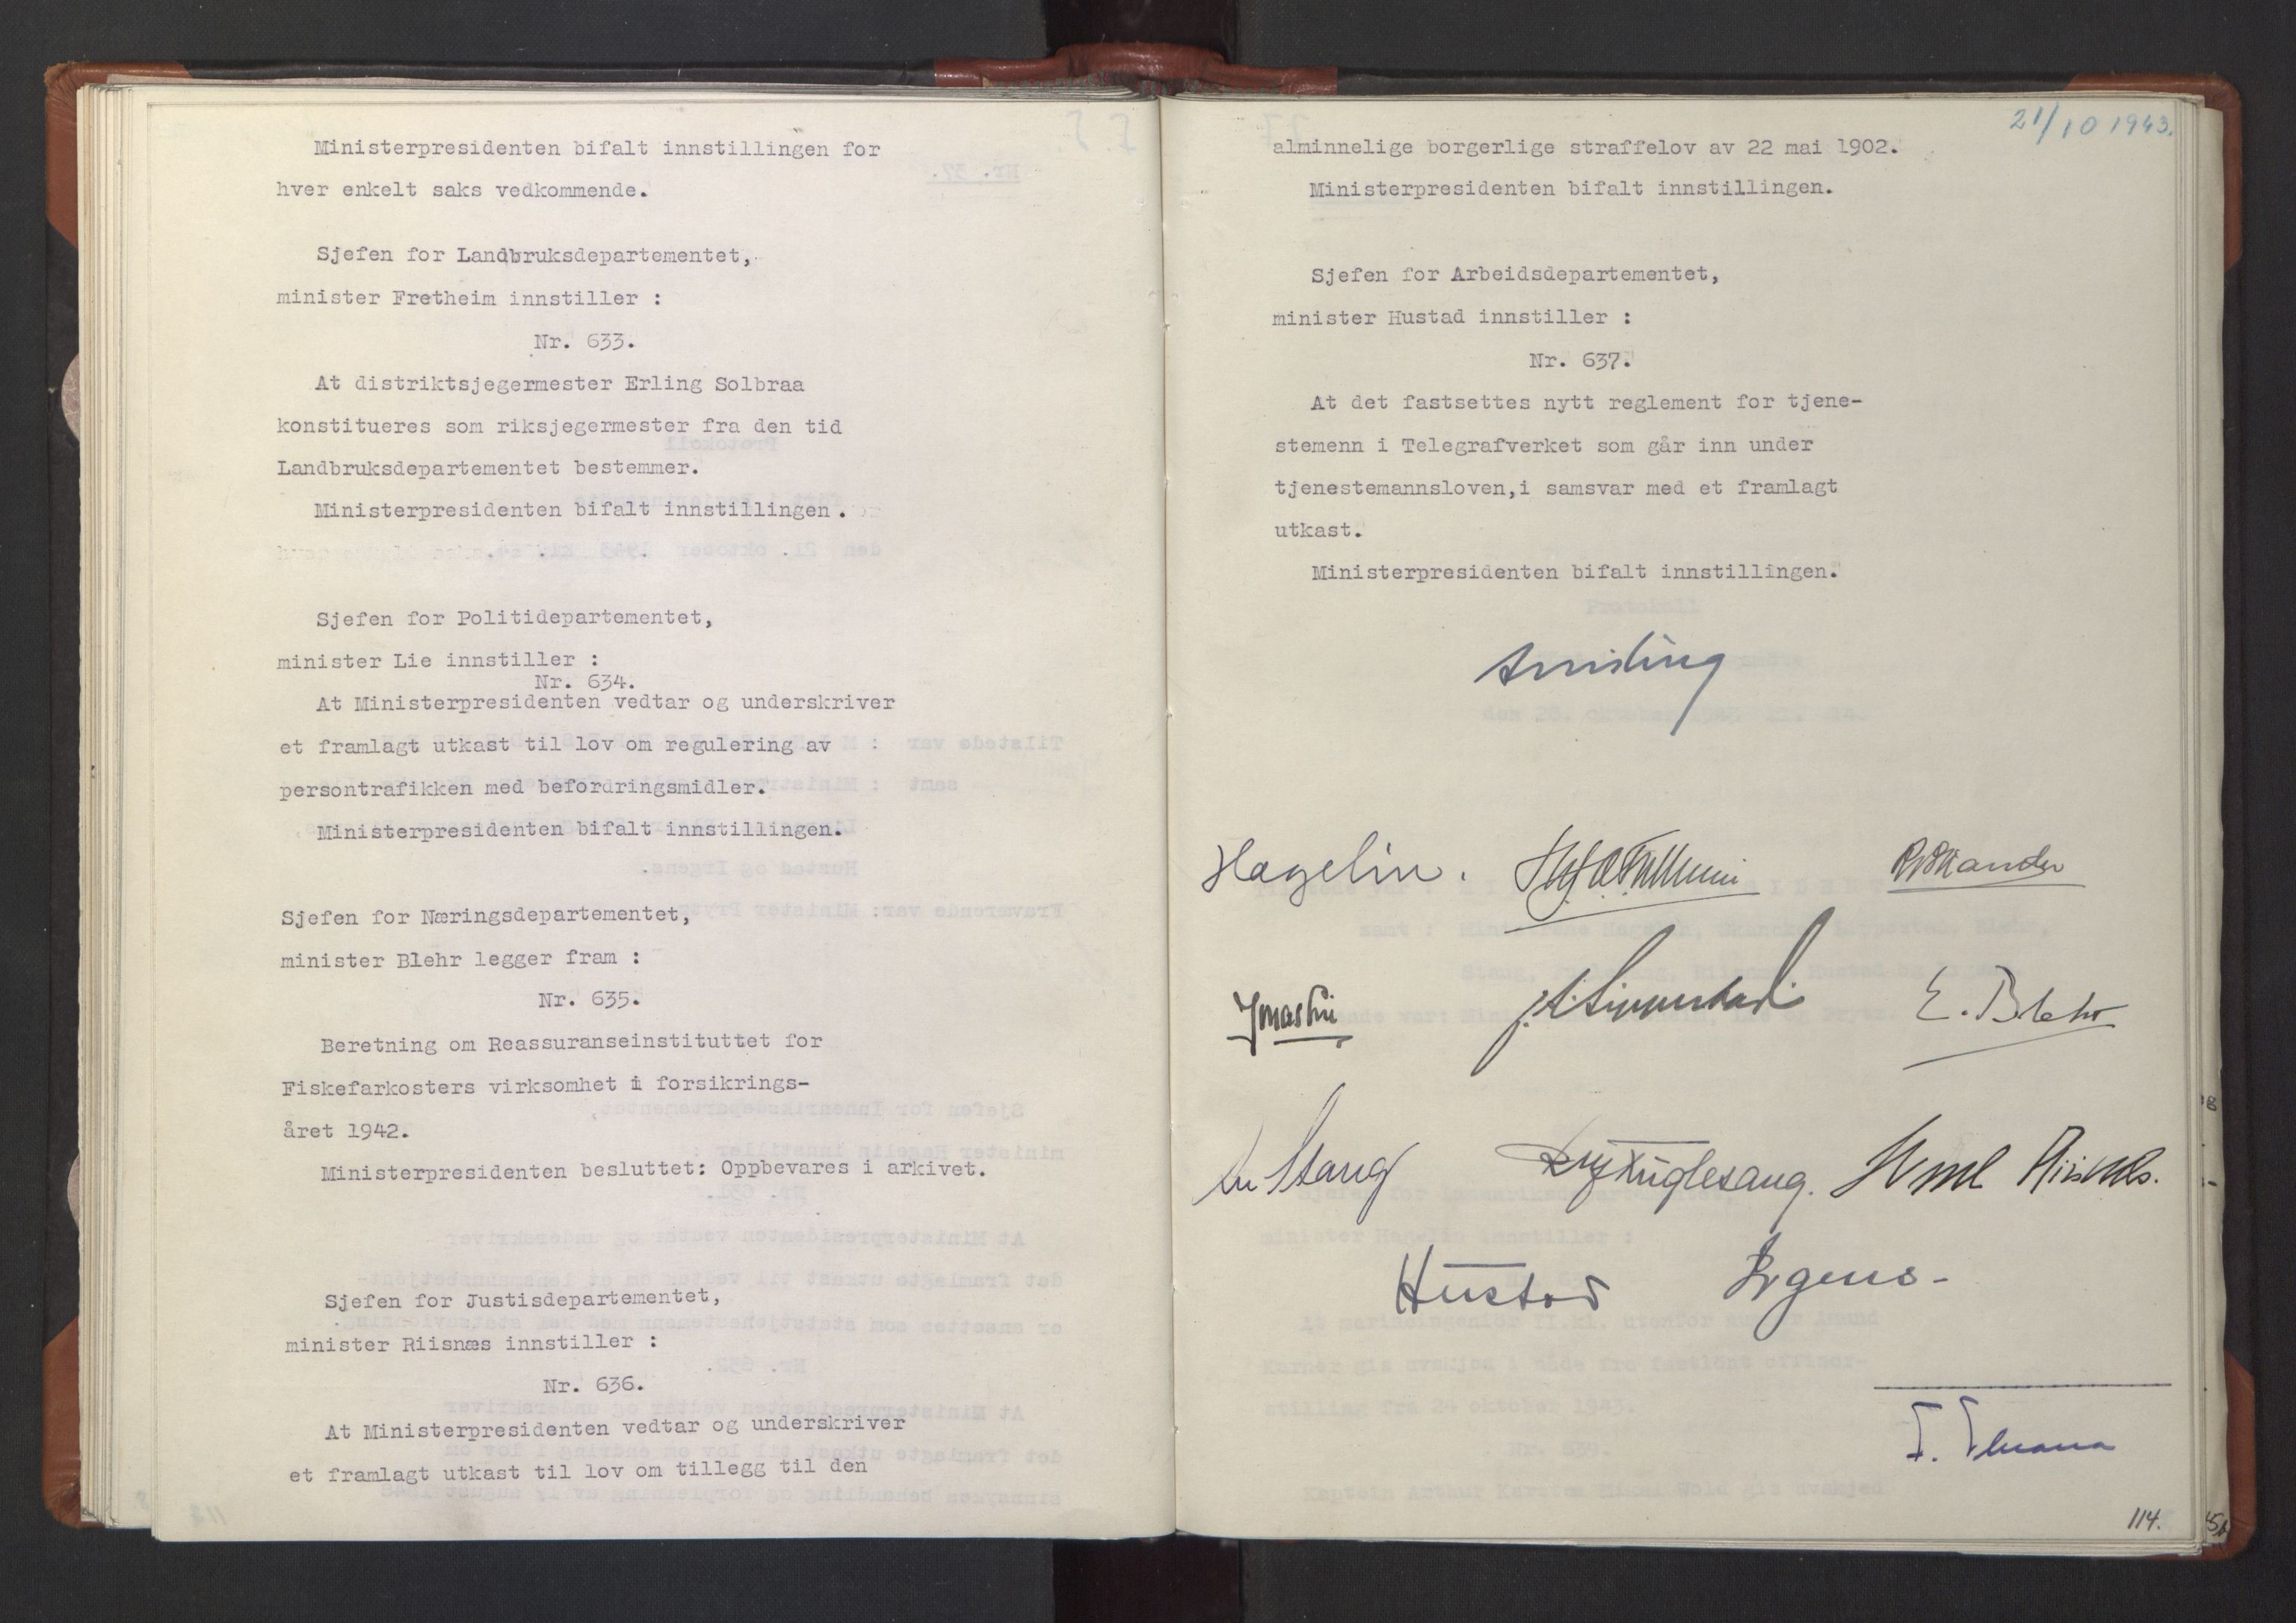 Ministerpresidenten bifalt innstillingen for
hver enkelt saks vedkommende.
Sjefen for Landbruksdepartementet,
minister Fretheim innstiller :
Nr. 633.
At distriktsjegermester Erling Solbraa
konstitueres som riksjegermester fra den tid
Landbruksdepartementet bestemmer.
Ministerpresidenten bifalt innstillingen.
Sjefen for Politidepartementet,
minister Lie innstiller :
Nr. 634.
At Ministerpresidenten vedtar og underskriver
et framlagt utkast til lov om regulering av
persontrafikken med befordringsmidler.
Ministerpresidenten bifalt innstillingen.
Sjefen for Næringsdepartementet,
minister Blehr legger fram :
Nr. 635.
Beretning om Reassuranseinstituttet for
Fiskefarkosters virksomhet i forsikrings-
året 1942.
Ministerpresidenten besluttet: Oppbevares i arkivet.
Sjefen for Justisdepartementet,
minister Riisnæs innstiller :
Nr. 636.
At Ministerpresidenten vedtar og underskriver
et framlagt utkast til lov om tillegg til den
21/10 1943.
alminnelige borgerlige straffelov av 22 mai 1902.
Ministerpresidenten bifalt innstillingen.
Sjefen for Arbeidsdepartementet,
minister Hustad innstiller :
Nr. 637.
At det fastsettes nytt reglement for tjene-
stemenn i Telegrafverket som går inn under
tjenestemannsloven,i samsvar med et framlagt
utkast.
Ministerpresidenten bifalt innstillingen.
Quisling
Hagelin.
E. Blehr
Stang Fuglesang. Riisnæs.
Hustad Irgens-
114.